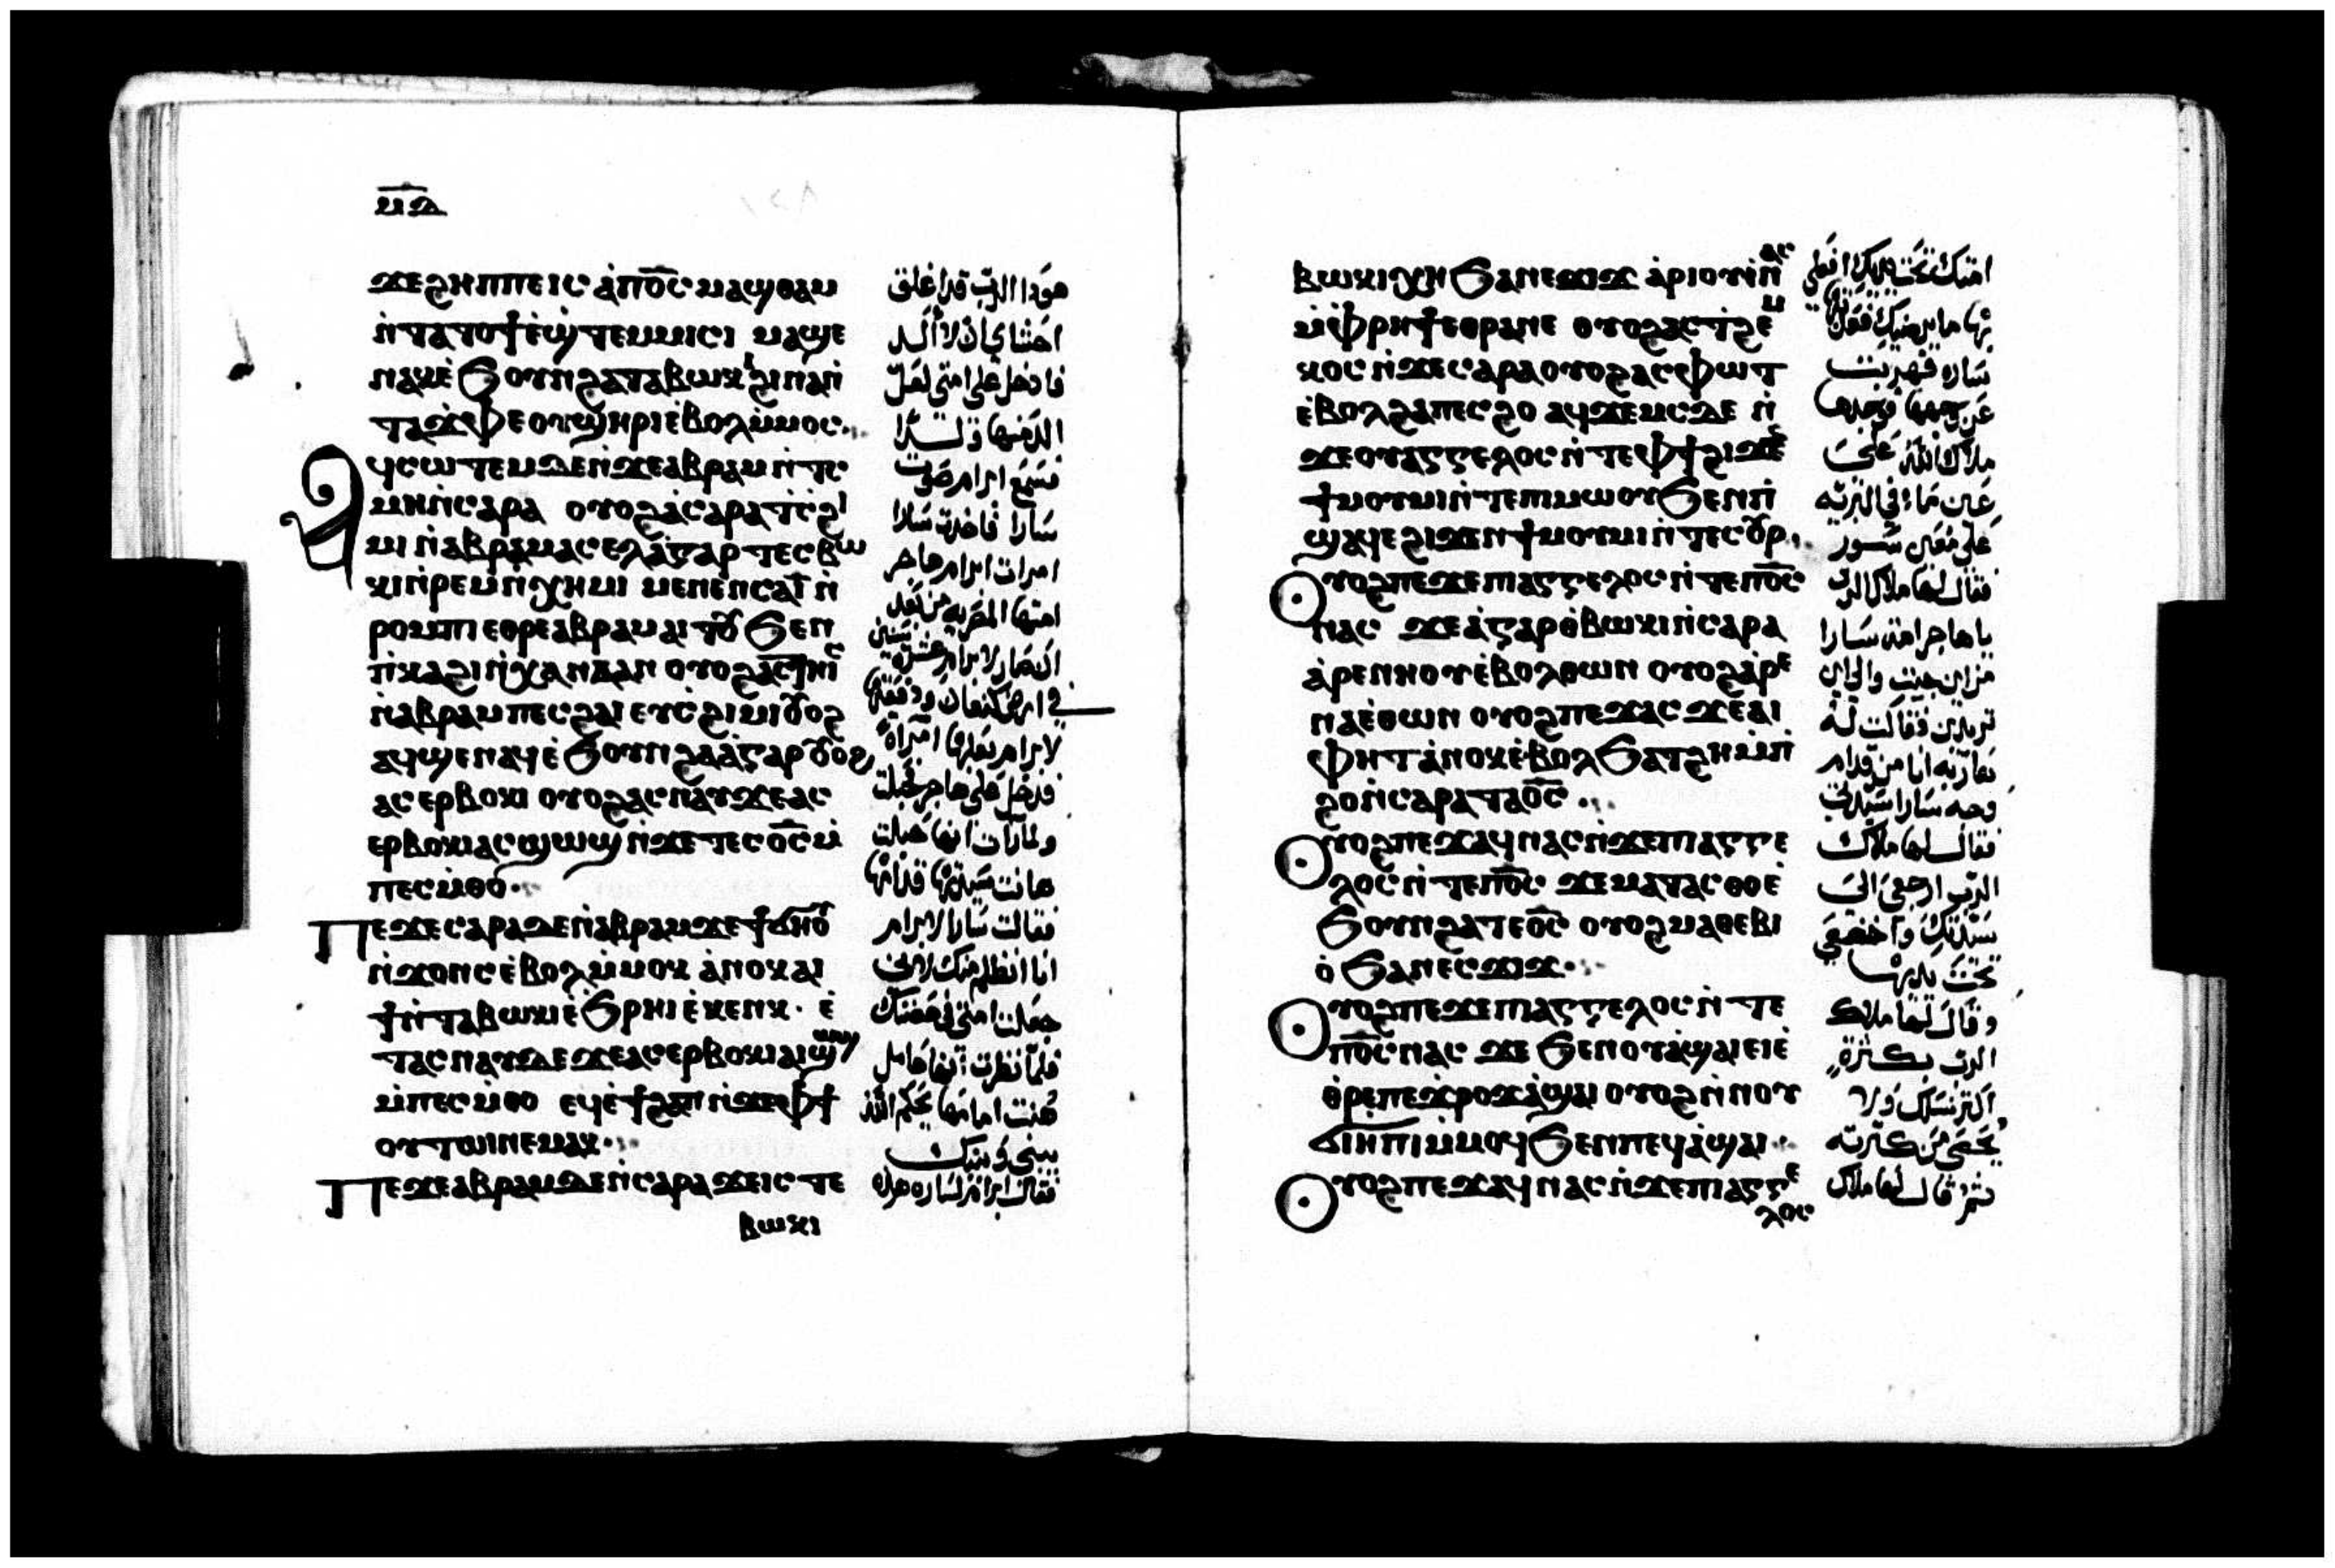 ⲙ̅ⲇ̅
ϫⲉϩⲏⲡⲡⲉⲓⲥ ⲁ̀ⲡⲟ̅ⲥ̅ ⲙⲁϣⲑⲁⲙ
ⲛ̀ⲧⲁⲧⲟϯⲉ̀ϣ̀ⲧⲉⲙⲙⲓⲥⲓ ⲙⲁϣⲉ
ⲛⲁⲕⲉ̀ϧⲟⲩⲛϩⲁⲧⲁⲃⲱⲕⲓϩⲓⲛⲁⲛ̀
ⲧⲁϫ̀ⲫⲉⲟⲩϣⲏⲣⲓⲉ̀ⲃⲟⲗⲙ̀ⲙⲟⲥ
ⲁϥⲥⲱⲧⲉⲙⲇⲉⲛ̀ϫⲉⲁⲃⲣⲁⲙⲛ̀ⲧⲥ
ⲙⲏⲛ̀ⲥⲁⲣⲁ ⲟⲩⲟϩⲁ̀ⲥⲁⲣⲁⲧ̀ⲥ̀ϩⲓ
ⲙⲓ ⲛ̀ⲁⲃⲣⲁⲙⲁⲥⲉⲗⲁ̀ⲅⲁⲣ ⲧⲉⲥⲃⲱ
ⲕⲓⲛ̀ⲣⲉⲙⲛ̀ⲭⲏⲙⲓ ⲙⲉⲛⲉⲛⲥⲁⲓ̅ ⲛ̀
ⲣⲟⲙⲡⲓ ⲉⲑⲣⲉⲁⲃⲣⲁⲙ ⲁⲓⲧⲟ ϧⲉⲛ
ⲡ̀ⲕⲁϩⲓⲛ̀ⲭⲁⲛⲁⲁⲛ ⲟⲩⲟϩⲁⲥⲧⲏⲓⲥ
ⲛ̀ⲁⲃⲣⲁⲙ ⲡⲉⲥϩⲁⲓ ⲉⲩⲥ̀ϩⲓⲙⲓ ⲟⲩⲟϩ
ⲁϥϣⲉⲛⲁϥⲉ̀ϧⲟⲩⲛϩⲁⲁ̀ⲅⲁⲣ ⲟⲩⲟϩ
ⲁⲥⲉⲣⲃⲟⲕⲓ ⲟⲩⲟϩⲁⲥⲛⲁⲩϫⲉⲁⲥ
ⲉⲣⲃⲟⲕⲓⲁⲥϣⲱϣ ⲛ̀ϫⲉⲧⲉⲥⲟ̅ⲥ̅ ⲙ̀
ⲡⲉⲥⲙ̀ⲑⲟ
ⲡⲉϫⲉⲥⲁⲣⲁⲇⲉⲛ̀ⲁⲃⲣⲁⲙϫⲉϯϭⲏⲟⲩ
ⲛ̀ϫⲟⲛⲥⲉ̀ⲃⲟⲗⲙ̀ⲙⲟⲕ ⲁ̀ⲛⲟⲕⲁⲓ
ϯⲛ̀ⲧⲁⲃⲱⲕⲓⲉ̀ϧⲣⲏⲓ ⲉ̀ⲕⲉⲛⲕ ⲉ̀
ⲧⲁⲥⲛⲁⲩⲇⲉϫⲉⲁⲥⲉⲣⲃⲟⲕⲓⲁⲓϣⲱϣ
ⲙ̀ⲡⲉⲥⲙ̀ⲑⲟ ⲉϥⲉ̀ϯϩⲁⲡ ⲛ̀ϫⲉⲫϯ
ⲟⲩⲧⲱⲓⲛⲉⲙⲁⲕ
ⲡⲉϫⲉⲁⲃⲣⲁⲙⲇⲉⲛ̀ⲥⲁⲣⲁ ϫⲉⲓⲥ ⲧⲉ
ⲃⲱⲕⲓ
هوذا الرب قد اغلق
احشاي لان لا الد
فادخل علي امتي لعل
فسمع ابرام صوت
سارا فاخذت سارا
امرات ابرام هاجر
امتها المصريه من بعد
لابرام بعلها امراة
فدخل علي هاجر فحبلت
ولما رات انها حبلت
هانت سيدتها قدامها
فقالت سارا لابرام
انا انظلم منك لاني
جعلت امتي في حضنك
فلما نظرت انها حامل
هنت امامها يحكم الله
بيني وبينك
فقال ابرام لساره هوذا
ⲃⲱⲕⲓⲭⲏ ϧⲁⲛⲉϫⲓϫ ⲁ̀ⲣⲓⲟⲩⲓ̀ⲛ̀ⲁⲥ
ⲙ̀ⲫⲣⲏϯⲉⲑⲣⲁⲛⲉ ⲟⲩⲟϩⲁⲥⲧ̀ϩⲉⲙ
ⲕⲟⲥ ⲛ̀ϫⲉⲥⲁⲣⲁⲟⲩⲟϩⲁⲥⲫⲱⲧ
ⲉ̀ⲃⲟⲗϩⲁⲡⲉⲥϩⲟ ⲁϥϫⲉⲙⲥⲇⲉ ⲛ̀
ϫⲉⲟⲩⲁⲅⲅⲉⲗⲟⲥ ⲛ̀ⲧⲉⲫϯϩⲓϫⲉⲛ
ϯⲙⲟⲩⲙⲓⲛ̀ⲧⲉⲡⲓⲙⲱⲟⲩϧⲉⲛⲡⲓ
ϣⲁϥⲉϩⲓϫⲉⲛϯⲙⲟⲩⲙⲓⲛ̀ⲧⲉⲥⲟⲩⲣ
ⲟⲩⲟϩⲡⲉϫⲉⲡⲓⲁⲅⲅⲉⲗⲟⲥ ⲛ̀ⲧⲉⲡⲟ̅ⲥ̅
ⲛⲁⲥ ϫⲉⲁ̀ⲅⲁⲣⲑ̀ⲃⲱⲕⲓⲛ̀ⲥⲁⲣⲁ
ⲁ̀ⲣⲉⲛⲏⲟⲩⲉ̀ⲃⲟⲗⲑⲱⲛ ⲟⲩⲟϩⲁ̀ⲣⲉ
ⲛⲁⲉ̀ⲑⲱⲛ ⲟⲩⲟϩⲡⲉϫⲁⲥ ϫⲉⲁⲓ
ⲫⲏⲧⲁ̀ⲛⲟⲕⲉ̀ⲃⲟⲗϧⲁⲧϩⲏⲙ̀ⲡ
ϩⲟⲛ̀ⲥⲁⲣⲁⲧⲁⲟ̅ⲥ̅
ⲟⲩⲟϩⲡⲉϫⲁϥⲛⲁⲥⲛ̀ϫⲉⲡⲓⲁⲅⲅⲉ
ⲗⲟⲥ ⲛ̀ⲧⲉⲡⲟ̅ⲥ̅ ϫⲉⲙⲁⲧⲁⲥⲑⲟⲉ̀
ϧⲟⲩⲛϩⲁⲧⲉⲟ̅ⲥ̅ ⲟⲩⲟϩⲙⲁⲑⲉⲃⲓ
ⲟ̀ ϧⲁⲛⲉⲥϫⲓϫ
ⲟⲩⲟϩⲡⲉϫⲉⲡⲓⲁⲅⲅⲉⲗⲟⲥ ⲛ̀ⲧⲉ
ⲡⲟ̅ⲥ̅ⲛⲁⲥ ϫⲉ ϧⲉⲛⲟⲩⲁ̀ϣⲁⲓⲉⲓⲉ̀
ⲑ̀ⲣⲉⲡⲉϫⲣⲟϫⲁ̀ϣⲁⲓ ⲟⲩⲟϩⲛ̀ⲛⲟⲩ
ϭⲓⲏⲡⲓⲙ̀ⲙⲟϥϧⲉⲛⲡⲉϥⲁ̀ϣⲁⲓ
ⲟⲩⲟϩⲡⲉϫⲁϥⲛⲁⲥⲛ̀ϫⲉⲡⲓⲁⲅⲅⲉ
ⲗⲟⲥ
امتك تحت يديك افعلي
بها ما يرضيك
ساره فهربت
عن وجهها فوجدها
ملاك الله علي
عين ماء في البريه
علي معين سور
فقال لها ملاك الرب
يا هاجر امة سارا
من اين جيت والي اين
تريدين فقالت له
هاربه انا من قدام
وجه سارا سيدتي
فقال لها ملاك
الرب ارجعي الي
سيدتك واخضعي
تحت يديها
وقال لها ملاك
الرب بكثرة
اكثر نسلك ولا
يحصي من كثرته
ثم قال لها ملاك